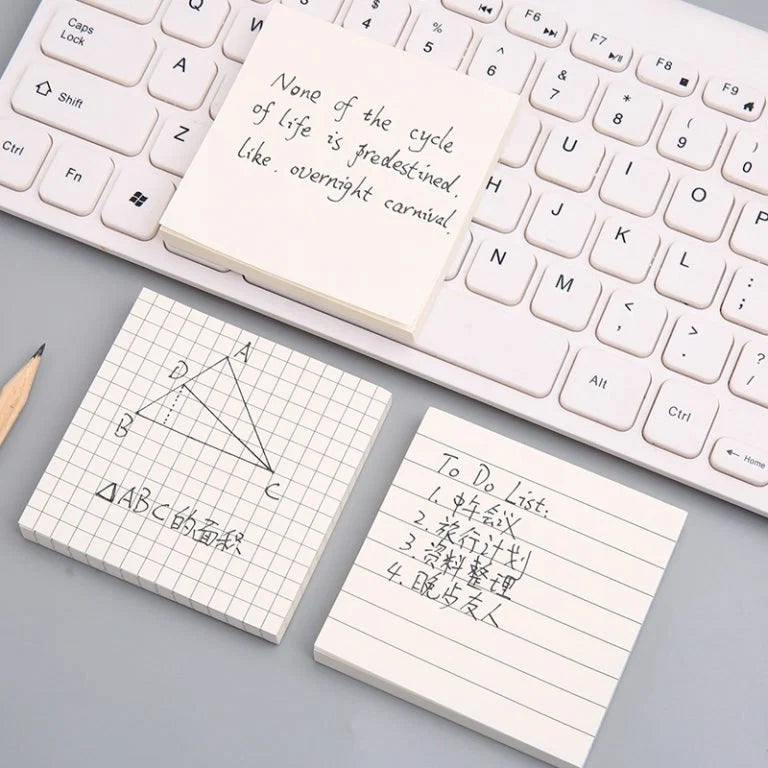 Caps
Lock
Shift
Ctrl
Fn
Q
W
A
Z
$
4
%
5
^
6
&
7
*
8
(
9
)
0
F6
F7
F8
F9
U
I
O
P
H
J
K
L
:
;
N
M
<
,
>
.
?
/
Alt
Ctrl
Home
None of the cycle
of life is predestined.
like. overnight carnival.
A
D
B
C
△ABC的面积
To Do List:
1. 中午会议
2. 旅行计划
3. 资料整理
4. 晚 友人